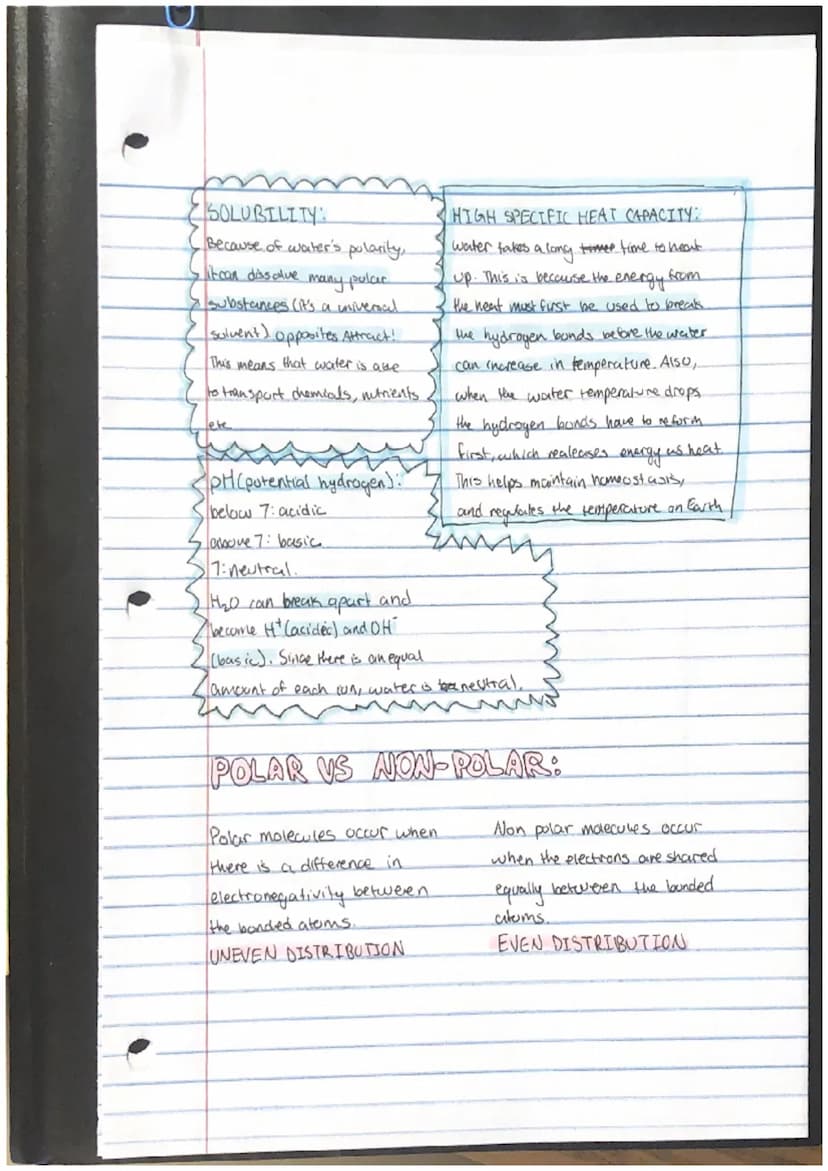 SOLUBILITY:
Because of water's polarity,
it can dissolve many polar
substances (it's a universal
solvent) opposites Attract!
This means that water is able
to transport chemicals, nutrients
etc
HIGH SPECIFIC HEAT CAPACITY:
water takes a long time to heat
up. This is because the energy from
the heat must first be used to break
the hydrogen bonds before the water
can increase in temperature. Also,
when the water temperature drops
the hydrogen bonds have to reform
first, which realeases energy as heat
This helps maintain homeostasis,
and regulates the temperature on Earth
pH (potential hydrogen):
below 7: acidic
above 7: basic
7: neutral.
H₂O can break apart and
become H⁺ (acidic) and OH⁻
(basic). Since there is an equal
amount of each ion, water is neutral.
POLAR VS NON-POLAR:
Polar molecules occur when
there is a difference in
electronegativity between
the bonded atoms.
UNEVEN DISTRIBUTION
Non polar molecules occur
when the electrons are shared
equally between the bonded
atoms.
EVEN DISTRIBUTION